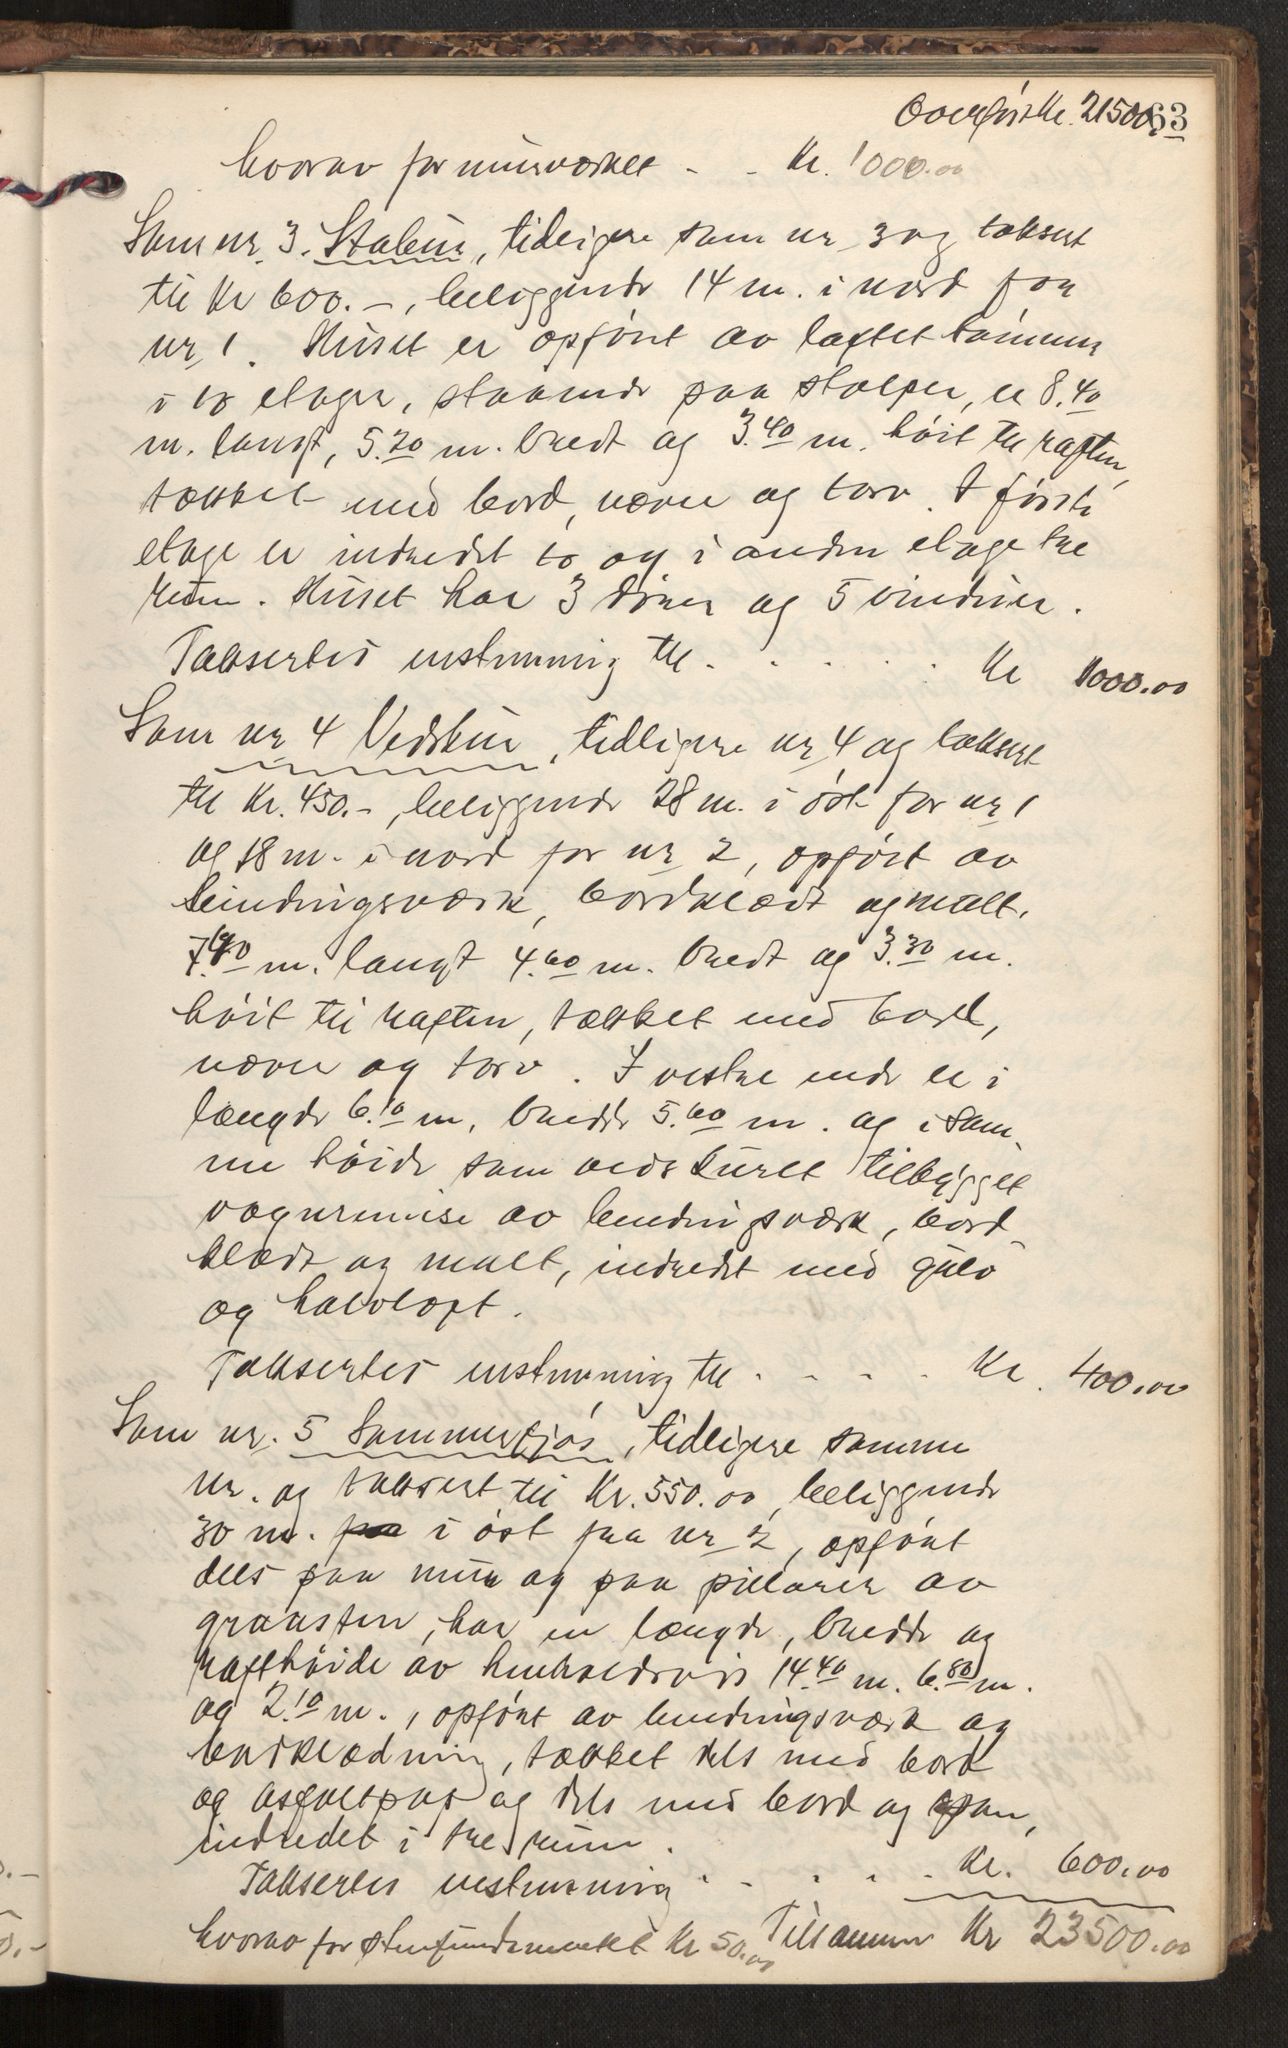 Overført Kr. 21500,
63
hvorav for murverket - - Kr. 1000.00
Som nr. 3. Stabur, tidligere som nr 3 og taksert
til Kr 600.-, beliggende 14 m. i nord for
nr 1. Huset er opført av laftet tømmer
i to etager, staaende paa stolper, er 8.40
m. langt, 5.20 m. bredt og 3.40 m. høit til raften,
tækket med bord, næver og torv. I første
etage er indredet to og i anden etage tre
rum. Huset har 3 dører og 5 vinduer.
Taksertes enstemmig til . . . . . Kr 1000.00
Som nr 4 Vedskur, tidligere nr 4 og taksert
til Kr. 450.-, beliggende 28 m. i øst for nr 1
og 18 m. i nord for nr 2, opført av
bindingsværk, bordklædt og malt.
m. langt 4.60 m. bredt og 3.30 m.
høit til raften, tækket med bord,
næver og torv. I vestre ende er i
længde 6.10 m, bredde 5.60 m. og i sam-
me høide som vedskuret tilbygget
vognremise av bindingsværk, bord-
klædt og malt, indredet med gulv
og halvloft.
Taksertes enstemmig til . - - . Kr. 400.00
Som nr. 5 Sommerfjøs, tidligere samme
nr. og taksert til Kr. 550.00 beliggende
30 m. fra i øst fra nr 2, opført
dels paa mur og paa pillarer av
graasten, har en længde, bredde og
rafthøide av henholdsvis 14.40 m. 6.80 m.
og 2.10 m., opført av bindingsværk og
bordklædning, tækket dels med bord
og asfaltpap og dels med bord og spon,
indredet i tre rum.
Taksertes enstemmig . - . . . Kr. 600.00
hvorav for stenfundamentet Kr 50.00 Tilsammen Kr 23500.00